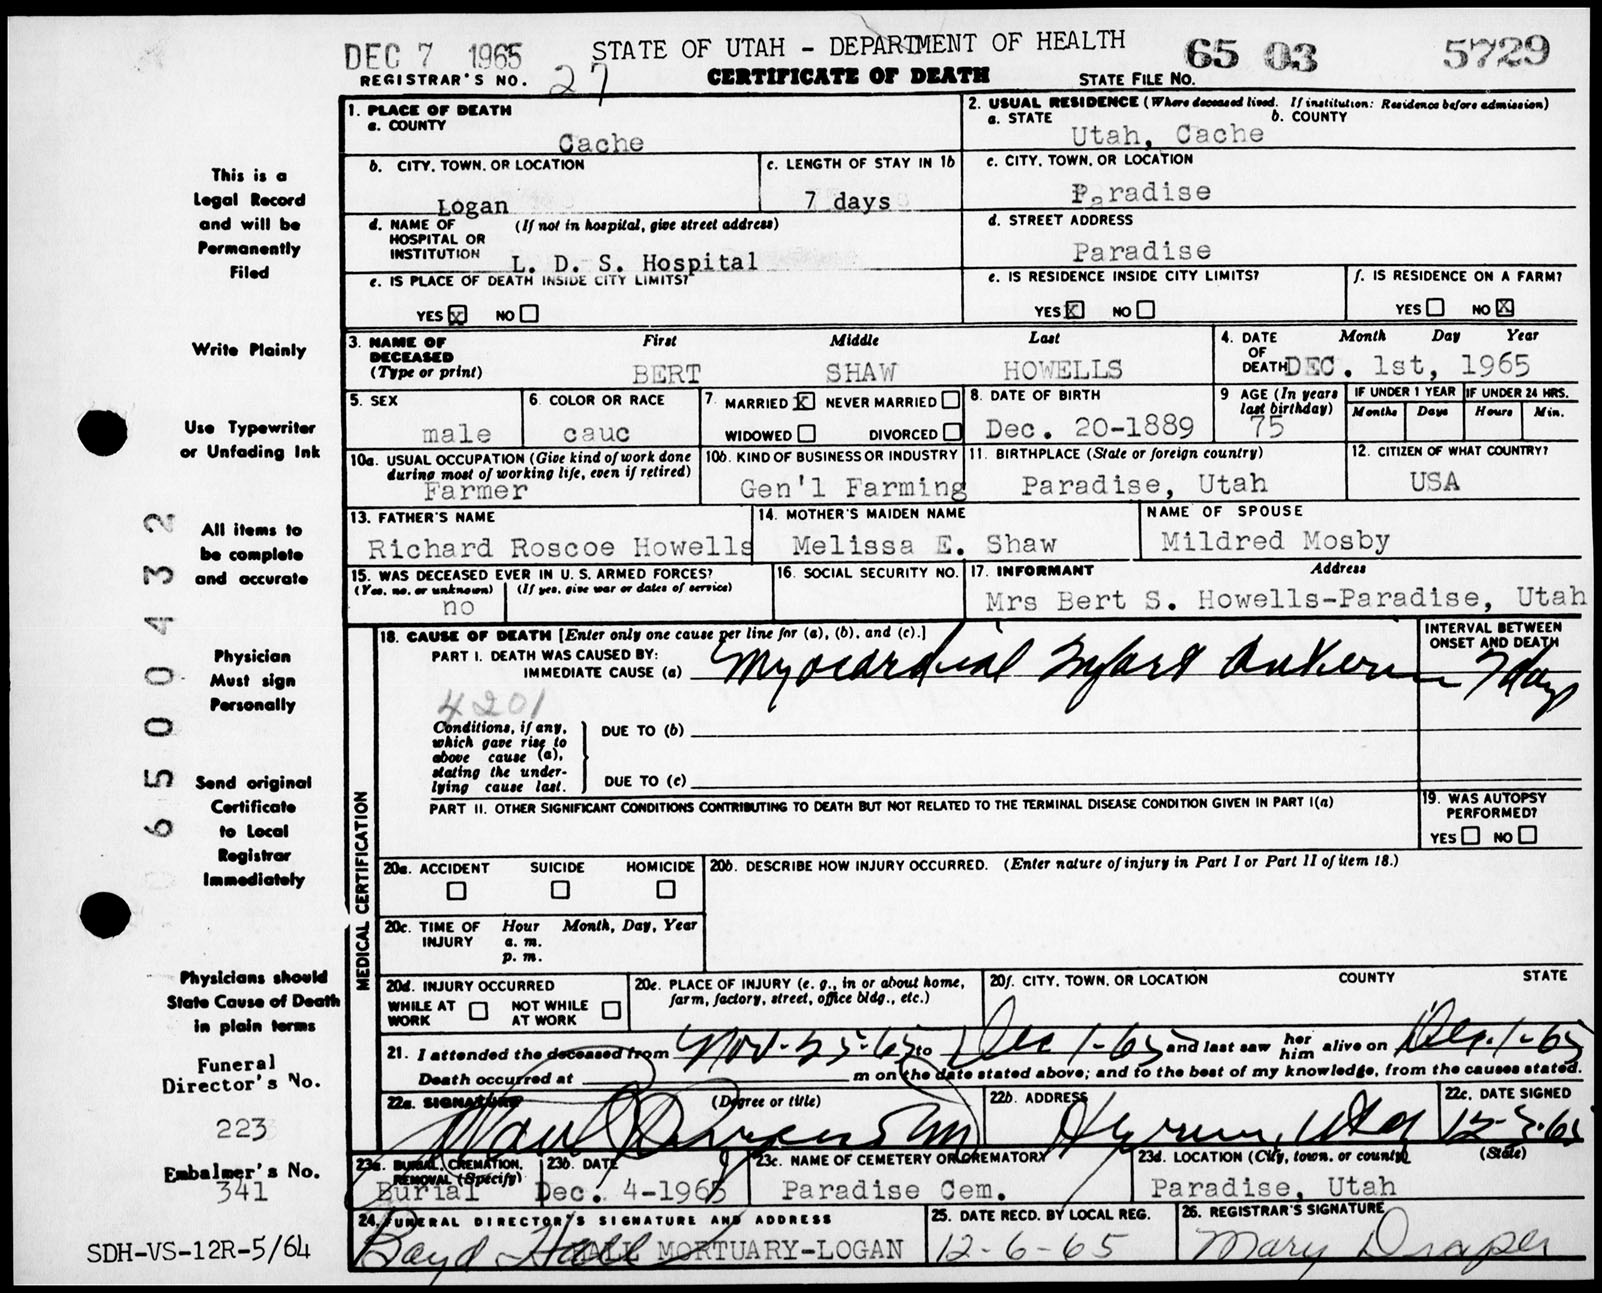 DEC 7 1965 STATE OF UTAH - DEPARTMENT OF HEALTH 65 03 5729
REGISTRAR'S NO. 27 CERTIFICATE OF DEATH STATE FILE NO.
1. PLACE OF DEATH
a. COUNTY
Cache
2. USUAL RESIDENCE (Where deceased lived. If institution: Residence before admission)
a. STATE b. COUNTY
Utah, Cache
b. CITY, TOWN, OR LOCATION
Logan
c. LENGTH OF STAY IN 1b
7 days
c. CITY, TOWN, OR LOCATION
Paradise
d. NAME OF (If not in hospital, give street address)
HOSPITAL OR
INSTITUTION L. D. S. Hospital
d. STREET ADDRESS
Paradise
e. IS PLACE OF DEATH INSIDE CITY LIMITS?
YES X NO
e. IS RESIDENCE INSIDE CITY LIMITS?
YES X NO
f. IS RESIDENCE ON A FARM?
YES NO X
3. NAME OF First Middle Last
DECEASED
(Type or print) BERT SHAW HOWELLS
4. DATE Month Day Year
OF
DEATH DEC. 1st, 1965
5. SEX
male
6. COLOR OR RACE
cauc
7. MARRIED X NEVER MARRIED
WIDOWED DIVORCED
8. DATE OF BIRTH
Dec. 20-1889
9 AGE (In years
last birthday)
75
IF UNDER 1 YEAR IF UNDER 24 HRS.
Months Days Hours Min.
10a. USUAL OCCUPATION (Give kind of work done
during most of working life, even if retired)
Farmer
10b. KIND OF BUSINESS OR INDUSTRY
Gen'l Farming
11. BIRTHPLACE (State or foreign country)
Paradise, Utah
12. CITIZEN OF WHAT COUNTRY?
USA
13. FATHER'S NAME
Richard Roscoe Howells
14. MOTHER'S MAIDEN NAME
Melissa E. Shaw
NAME OF SPOUSE
Mildred Mosby
15. WAS DECEASED EVER IN U. S. ARMED FORCES?
(Yes, no, or unknown) (If yes, give war or dates of service)
no
16. SOCIAL SECURITY NO.
17. INFORMANT Address
Mrs Bert S. Howells-Paradise, Utah
MEDICAL CERTIFICATION
18. CAUSE OF DEATH [Enter only one cause per line for (a), (b), and (c).]
PART I. DEATH WAS CAUSED BY:
IMMEDIATE CAUSE (a) Myocardial Infarct
INTERVAL BETWEEN
ONSET AND DEATH
7 days
4201
Conditions, if any,
which gave rise to
above cause (a),
stating the under-
lying cause last.
DUE TO (b)
DUE TO (c)
PART II. OTHER SIGNIFICANT CONDITIONS CONTRIBUTING TO DEATH BUT NOT RELATED TO THE TERMINAL DISEASE CONDITION GIVEN IN PART I(a)
19. WAS AUTOPSY
PERFORMED?
YES NO
20a. ACCIDENT SUICIDE HOMICIDE
20b. DESCRIBE HOW INJURY OCCURRED. (Enter nature of injury in Part I or Part II of item 18.)
20c. TIME OF Hour Month, Day, Year
INJURY a. m.
p. m.
20d. INJURY OCCURRED
WHILE AT WORK NOT WHILE AT WORK
20e. PLACE OF INJURY (e. g., in or about home,
farm, factory, street, office bldg., etc.)
20f. CITY, TOWN, OR LOCATION COUNTY STATE
21. I attended the deceased from Nov-25-65 to Dec 1-65 and last saw her him alive on Dec. 1-65
Death occurred at m on the date stated above; and to the best of my knowledge, from the causes stated.
22a. SIGNATURE (Degree or title)
22b. ADDRESS
Hyrum, Utah
22c. DATE SIGNED
12-3-65
23a. BURIAL, CREMATION,
REMOVAL (Specify)
Burial
23b. DATE
Dec. 4-1965
23c. NAME OF CEMETERY OR CREMATORY
Paradise Cem.
23d. LOCATION (City, town, or county) (State)
Paradise, Utah
24. FUNERAL DIRECTOR'S SIGNATURE AND ADDRESS
Boyd Hall HALL MORTUARY-LOGAN
25. DATE RECD. BY LOCAL REG.
12-6-65
26. REGISTRAR'S SIGNATURE
Mary Draper
This is a
Legal Record
and will be
Permanently
Filed
Write Plainly
Use Typewriter
or Unfading Ink
All items to
be complete
and accurate
Physician
Must sign
Personally
Send original
Certificate
to Local
Registrar
Immediately
Physicians should
State Cause of Death
in plain terms
Funeral
Director's No.
223
Embalmer's No.
341
SDH-VS-12R-5/64
6500432